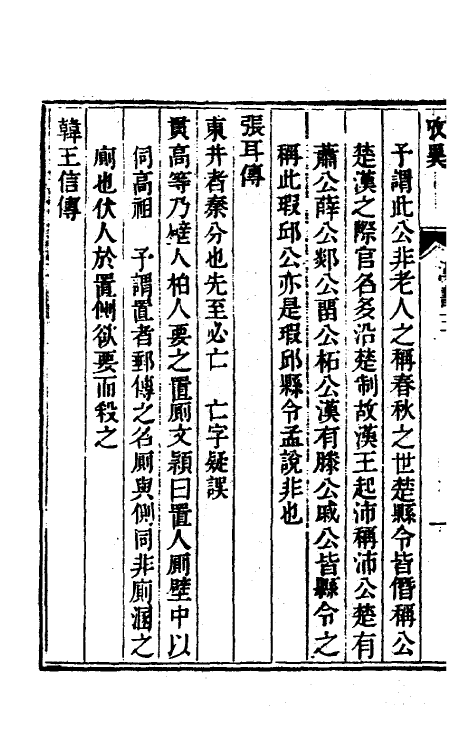 攷異
予謂此公非老人之稱春秋之世楚縣令皆僭稱公
楚漢之際官名多沿楚制故漢王起沛稱沛公楚有
蕭公薛公郯公畱公柘公漢有滕公戚公皆縣令之
稱此瑕邱公亦是瑕邱縣令孟說非也
張耳傳
東井者秦分也先至必亡　亡字疑誤
貫高等乃壁人柏人要之置廁文穎曰置人廁壁中以
伺高祖　予謂置者郵傳之名廁與側同非廁溷之
廁也伏人於置側欲要而殺之
韓王信傳